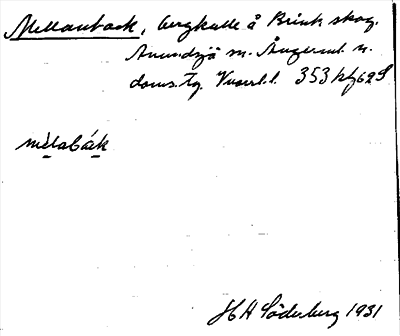 Mellanback, bergkulle å Brink skog.
Anundsjö sn. Ångerml. n.
doms. Tg. 353
mèlabák
HH Söderberg 1931